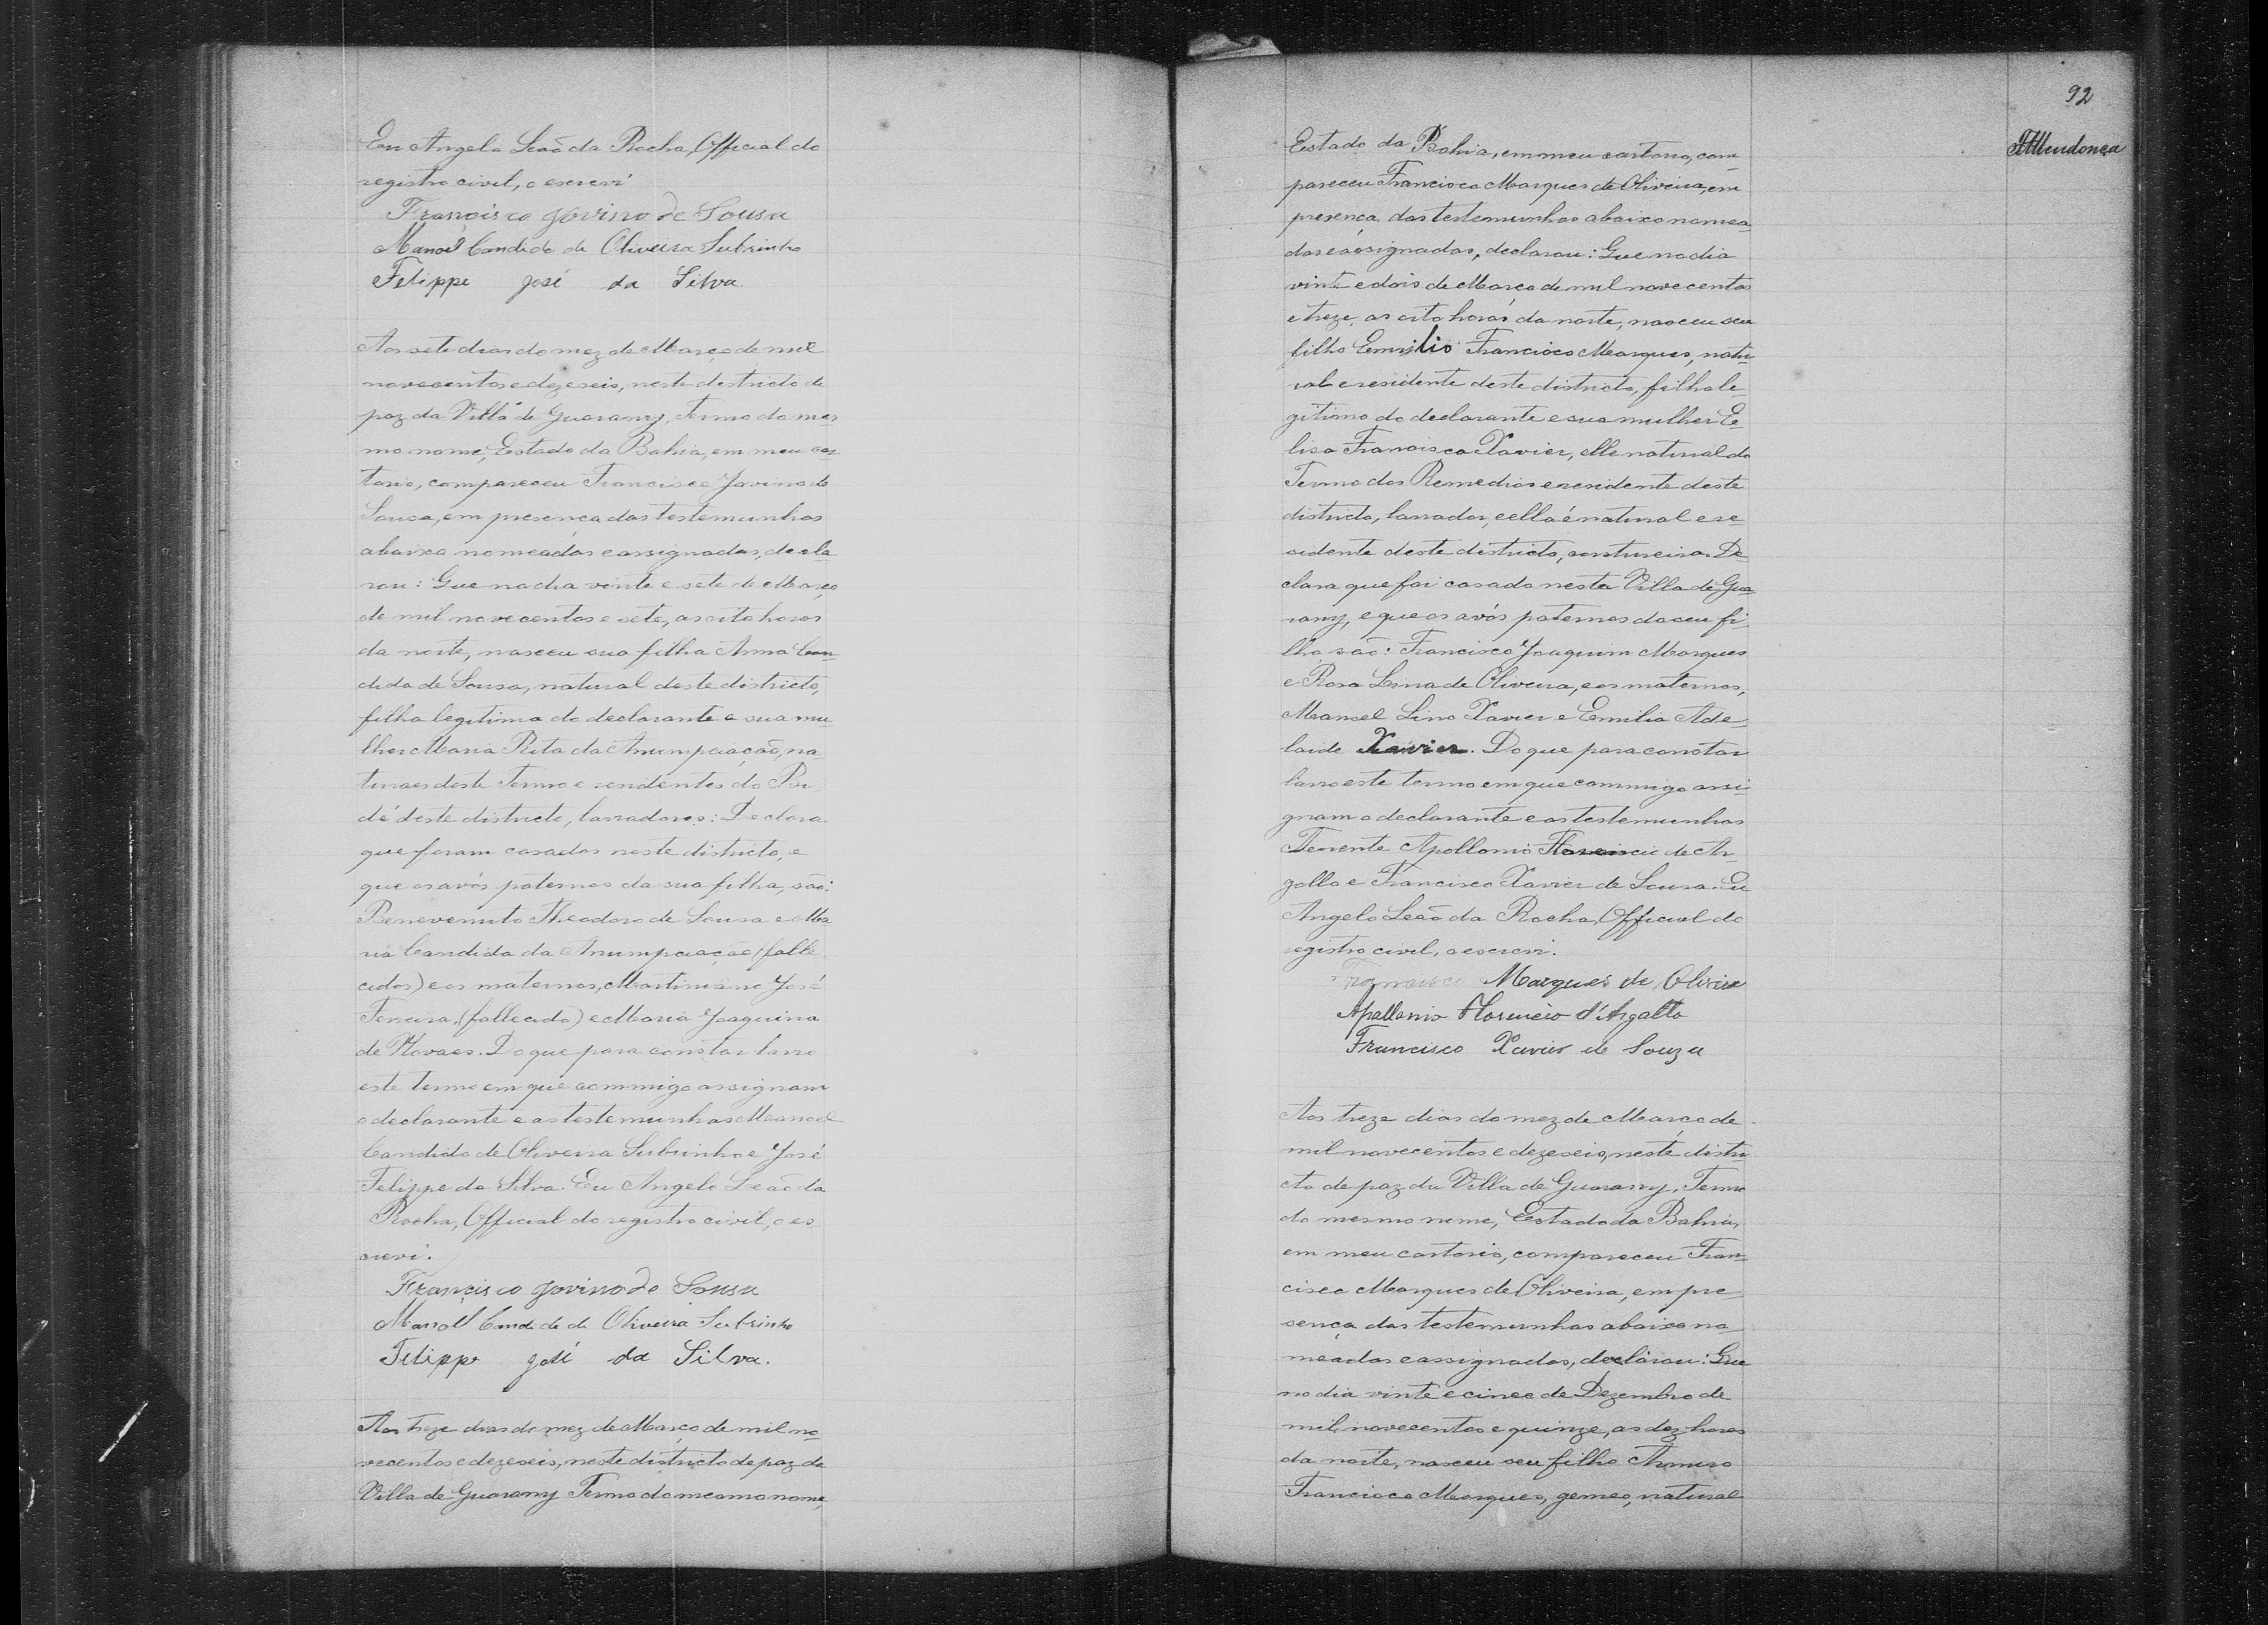 Eu Angelo Leão da Rocha, Official do
registro civil, o escrevi
Francisco Jovino de Sousa
Manoel Candido de Oliveira Subrinho
Felippe José da Silva
Aos sete dias do mez de Março de mil
novecentos e dezeseis, neste districto de
paz da Villa de Guarany, Termo do mes
mo nome, Estado da Bahia, em meu car
torio, compareceu Francisco Jovino de
Sousa, em presença das testemunhas
abaixo nomeadas e assignadas, decla
rou: Que no dia vinte e sete de Março
de mil novecentos e sete, as oito horas
da noite, nasceu sua filha Anna Can
dida de Sousa, natural deste districto,
filha legitima do declarante e sua mu
lher Maria Rita da Anumpciação, na
turaes deste Termo e residentes do
deste districto, lavradores: Declara
que foram casados neste districto, e
que os avós paternos da sua filha, são:
Benevenuto Theodoro de Sousa e Ma
ria Candida da Anumpciação (falle
cidos) e os maternos, Martiniano José
Ferreira, (fallecido) e Maria Joaquina
de Novaes. Do que para constar lavro
este termo em que commigo assignam
o declarante e as testemunhas Manoel
Candido de Oliveira Subrinho e José
Felippe da Silva. Eu Angelo Leão da
Rocha, Official do registro civil, o es
crevi.
Francisco Jovino de Sousa
Manoel Candido de Oliveira Subrinho
Felippe José da Silva.
Aos treze dias do mez de Março de mil no-
vecentos e dezeseis, neste districto de paz da
Villa de Guarany Termo do mesmo nome,
92
Mendonça
Estado da Bahia, em meu cartorio, com-
pareceu Francisco Marques de Oliveira, em
presença das testemunhas abaixo nomea-
das e assignadas, declarou: Que no dia
vinte e dois de Março de mil novecentos
e treze, as oito horas da noite, nasceu seu
filho Emilio Francisco Marques, natu-
ral e residente deste districto, filho le-
gitimo do declarante e sua mulher E-
lisa Francisca Xavier, elle natural do
Termo dos Remedios e residente deste
districto, lavrador, e ella é natural e re-
sidente deste districto, costureira. De-
clara que foi casado nesta Villa de Gua-
rany, e que os avós paternos do seu fi-
lho são: Francisco Joaquim Marques
e Rosa Lima de Oliveira, e os maternos,
Manoel Lino Xavier e Emilia Ade-
laide Xavier. Do que para constar
lavro este termo em que commigo assi-
gnam o declarante e as testemunhas
Tenente Apollonio Florencio de Ar-
gollo e Francisco Xavier de Sousa. Eu
Angelo Leão da Rocha, Official do
registro civil, o escrevi.
Francisco Marques de Oliveira
Apollonio Florencio d'Argollo
Francisco Xavier de Souza
Aos treze dias do mez de Março de
mil novecentos e dezeseis, neste distri
cto de paz da Villa de Guarany, Termo
do mesmo nome, Estado da Bahia,
em meu cartorio, compareceu Fran-
cisco Marques de Oliveira, em pre-
sença das testemunhas abaixo no-
meadas e assignadas, declarou: Que
no dia vinte e cinco de Dezembro de
mil novecentos e quinze, as dez horas
da noite, nasceu seu filho
Francisco Marques, gemeo, natural